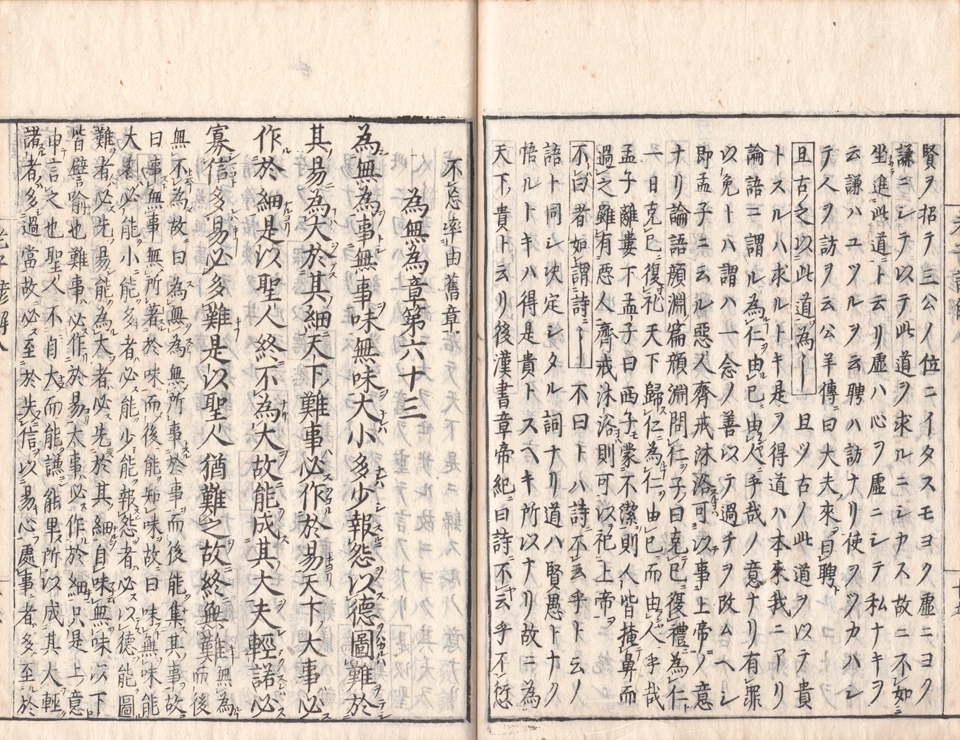 賢ヲ招テ三公ノ位ニイタスモヨク虚ニヨク
謙ニシテ以テ此道ヲ求ルニシカス故ニ不如
坐進此道ト云リ虚ハ心ヲ虚ニシテ私ナキヲ
云謙ハユツルヲ云聘ハ訪ナリ使ヲツカハシ
テ人ヲ訪ヲ云公羊傳曰大夫來曰聘
且古之以此道為 且ツ古ノ此道ヲ以テ貴
トスルハ求ルトキ是ヲ得道ハ本來我ニアリ
論語ニ謂ル為仁由已由人乎哉ノ意ナリ有罪
以免トハ謂ハ一念ノ善以テ過チヲ改ムヘシ
即孟子ニ云ル惡人齊戒沐浴可以事上帝ノ意
ナリ論語顔淵篇顔淵問仁子曰克已復禮為仁
一日克已復礼天下歸仁為仁由已而由人乎哉
孟子離婁下孟子曰西子蒙不潔則人皆掩鼻而
過之雖有惡人齊戒沐浴則可以祀上帝
不曰者如謂詩 不曰トハ詩不云乎ト云ノ
語ト同シ决定シタル詞ナリ道ハ賢愚トナク
悟ルトキハ得是貴トスヘキ所以ナリ故ニ為
天下貴ト云リ後漢書章帝紀曰詩不云乎不愆
不忘率由舊章
為無為章第六十三
為無為事無事味無味大小多少報怨以德圖難於
其易為大於其細天下難事必作於易天下大事必
作於細是以聖人終不為大故能成其大夫輕諾必
寡信多易必多難是以聖人猶難之故終無難 無為而後
無不為故曰為無為無所事於事而後能集其事故
曰事無事無所著於味而後能知味故曰味無味能
大者必能小能多者必能少能報怨者必以德能圖
難者必先易能為大者必先於其細自味無味以下
皆譬喻也難事必作於易大事必作於細只是上意
申言之也聖人不自大而能謙能卑所以成其大輕
諾者多過當故必至於失信以易心處事者多至於